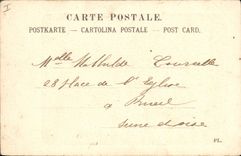 I
CARTE POSTALE.
POSTKARTE — CARTOLINA POSTALE — POST CARD.
Melle Mathilde
28 place de l'Eglise
à Rueil
Seine et oise
PL.